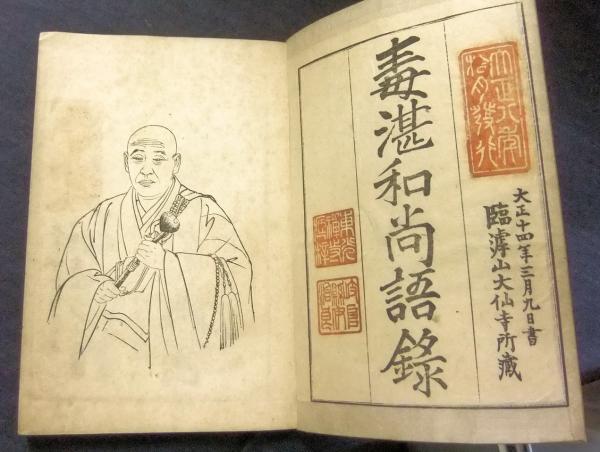 大正十四年三月九日書
臨滹山大仙寺所藏
毒湛和尚語錄